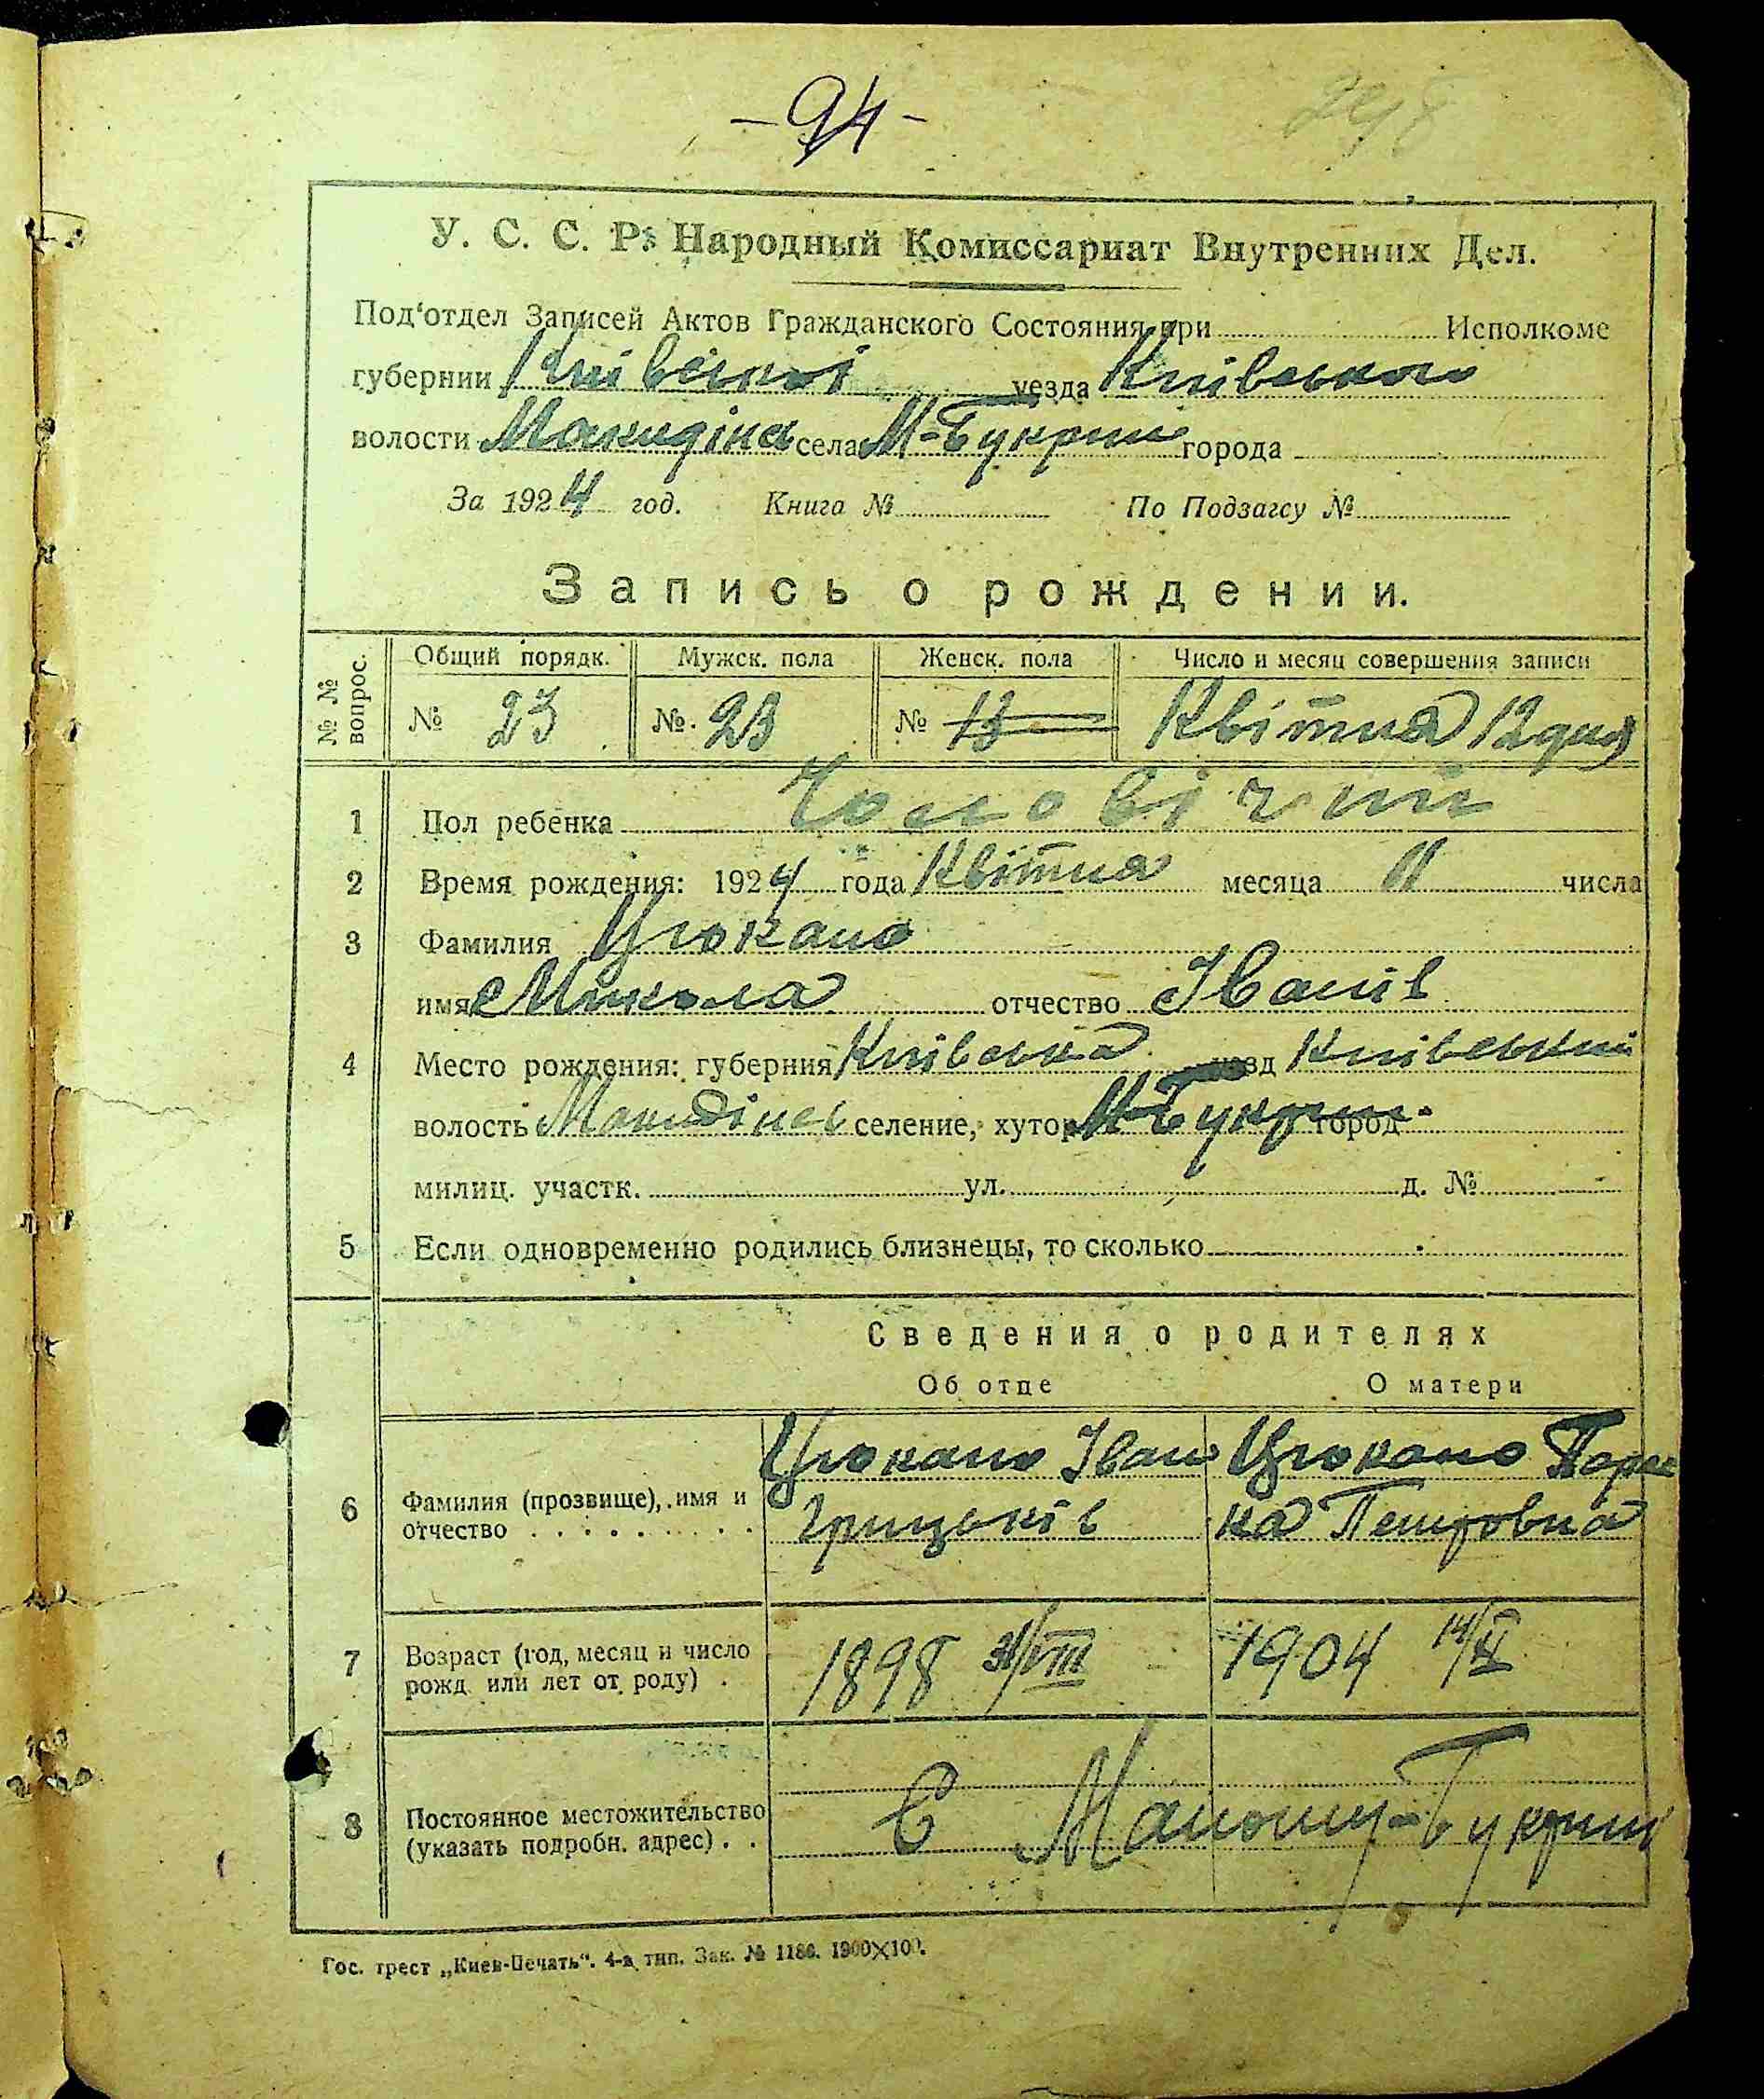 - 94 -
У. С. С. Р. Народный Комиссариат Внутренних Дел.
Под‘отдел Записей Актов Гражданского Состояния при Исполкоме
губернии Київської уезда Київського
волости села М-Букрин города
За 1924 год. Книга № По Подзагсу №
Запись о рождении.
№ № вопрос.
Общий порядк. Мужск. пола Женск. пола Число и месяц совершения записи
№ 23 №. 23 № 13 Квітня 12 дня
1 Пол ребенка Чоловічий
2 Время рождения: 1924 года Квітня месяца 11 числа
3 Фамилия Цюкало
имя Микола отчество Іванів
4 Место рождения: губерния Київська уезд Київський
волость селение, хутор М-Букрин город
милиц. участк. ул. д. №
5 Если одновременно родились близнецы, то сколько
Сведения о родителях
Об отце О матери
Цюкало Іван Цюкало Пара
6 Фамилия (прозвище), имя и
отчество Грицьків ка Петровна
7 Возраст (год, месяц и число
рожд. или лет от роду) 1898 31/VIII 1904 14/X
8 Постоянное местожительство
(указать подробн. адрес) С Букрин
Гос. трест „Киев-Печать“. 4-я тип. Зак. № 1186. 1900×100.